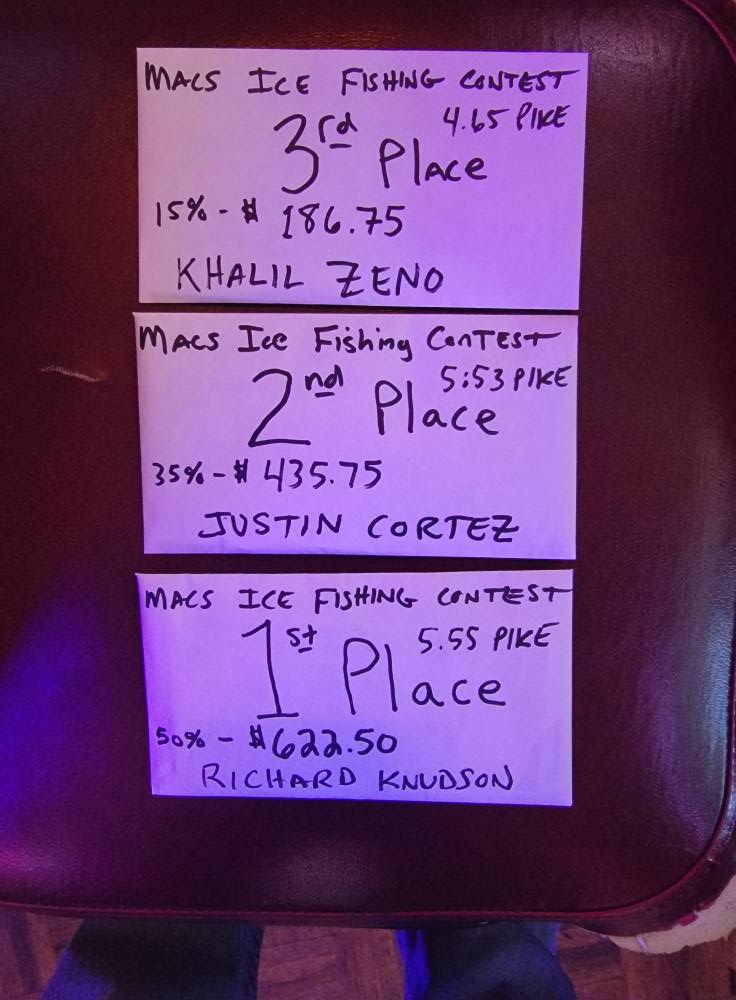 MACS ICE FISHING CONTEST
4.65 PIKE
3rd Place
15% - $ 186.75
KHALIL ZENO
MACS Ice Fishing CONTEST
5:53 PIKE
2nd Place
35% - $ 435.75
JUSTIN CORTEZ
MACS ICE FISHING CONTEST
5.55 PIKE
1st Place
50% - $622.50
RICHARD KNUDSON